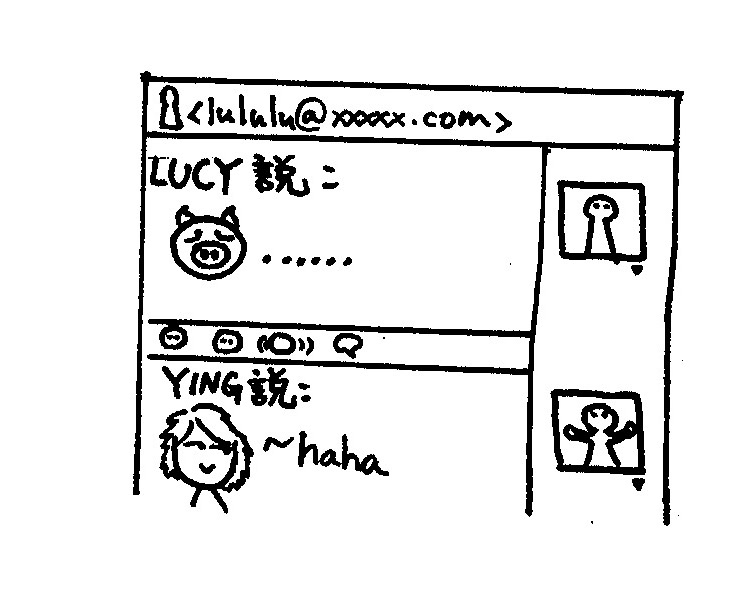 <lululu@xxxxx.com>
LUCY 説：
......
YING 説：
~haha